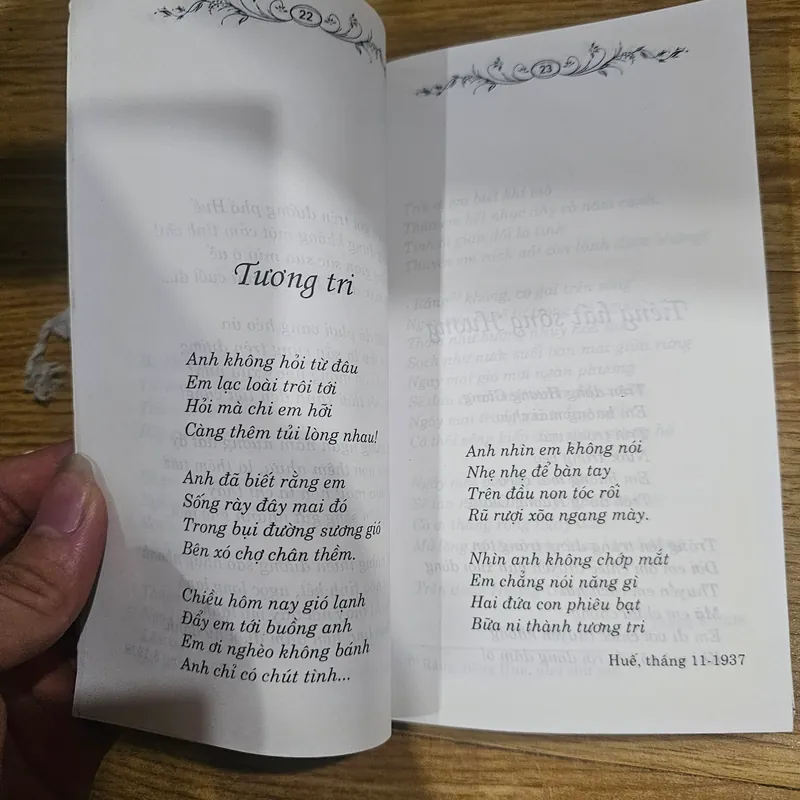 22
Tương tri
Anh không hỏi từ đâu
Em lạc loài trôi tới
Hỏi mà chi em hỡi
Càng thêm tủi lòng nhau!
Anh đã biết rằng em
Sống rày đây mai đó
Trong bụi đường sương gió
Bên xó chợ chân thềm.
Chiều hôm nay gió lạnh
Đẩy em tới buồng anh
Em ơi nghèo không bánh
Anh chỉ có chút tình...
23
Anh nhìn em không nói
Nhẹ nhẹ để bàn tay
Trên đầu non tóc rối
Rũ rượi xõa ngang mày.
Nhìn anh không chớp mắt
Em chẳng nói năng gì
Hai đứa con phiêu bạt
Bữa ni thành tương tri
Huế, tháng 11-1937